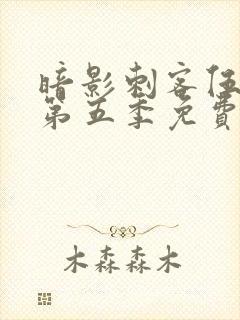 暗影刺客伍
第五季免費
木森森木